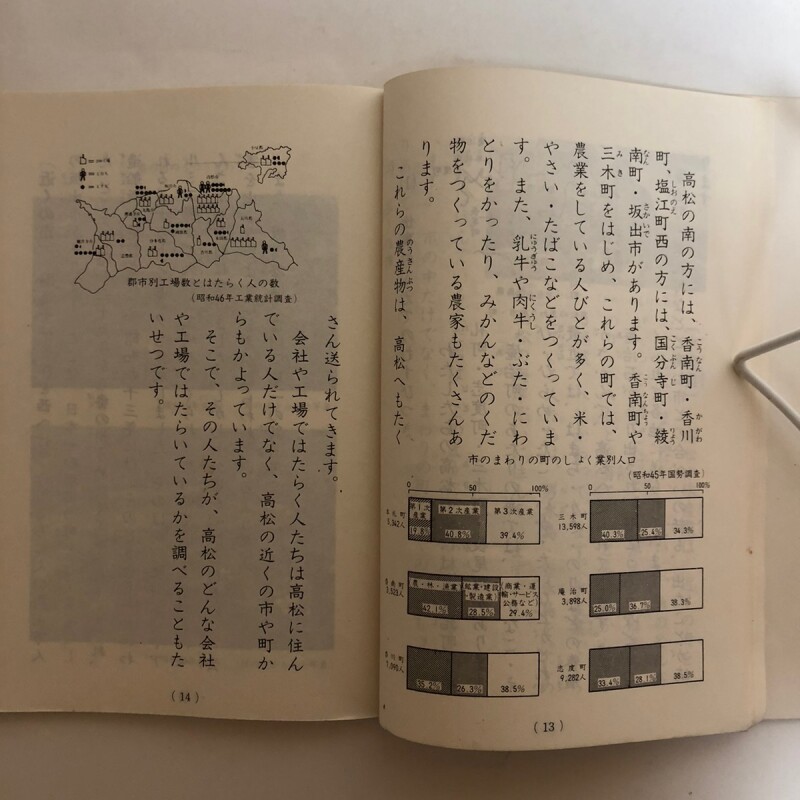 高松の南の方には、香南町・香川
町、塩江町西の方には、国分寺町・綾
南町・坂出市があります。香南町や
三木町をはじめ、これらの町では、
農業をしている人びとが多く、米・
やさい・たばこなどをつくっていま
す。また、乳牛や肉牛・ぶた・にわ
とりをかったり、みかんなどのくだ
物をつくっている農家もたくさんあ
ります。
これらの農産物は、高松へもたく
市のまわりの町のしょく業別人口
(昭和45年国勢調査)
0 50 100%
第1次産業 第2次産業 第3次産業
19.8% 40.8% 39.4%
南町
(農・林・漁業) (鉱業・建設・製造業) (商業・運輸・サービス公務など)
42.1% 28.5% 29.4%
川町
35.2% 26.3% 38.5%
0 50 100%
三木町
13,598人
40.3% 25.4% 34.3%
庵治町
3,898人
25.0% 36.7% 38.3%
志度町
9,282人
33.4% 28.1% 38.5%
(13)
郡市別工場数とはたらく人の数
(昭和46年工業統計調査)
さん送られてきます。
会社や工場ではたらく人たちは高松に住ん
でいる人だけでなく、高松の近くの市や町か
らもかよっています。
そこで、その人たちが、高松のどんな会社
や工場ではたらいているかを調べることもた
いせつです。
(14)